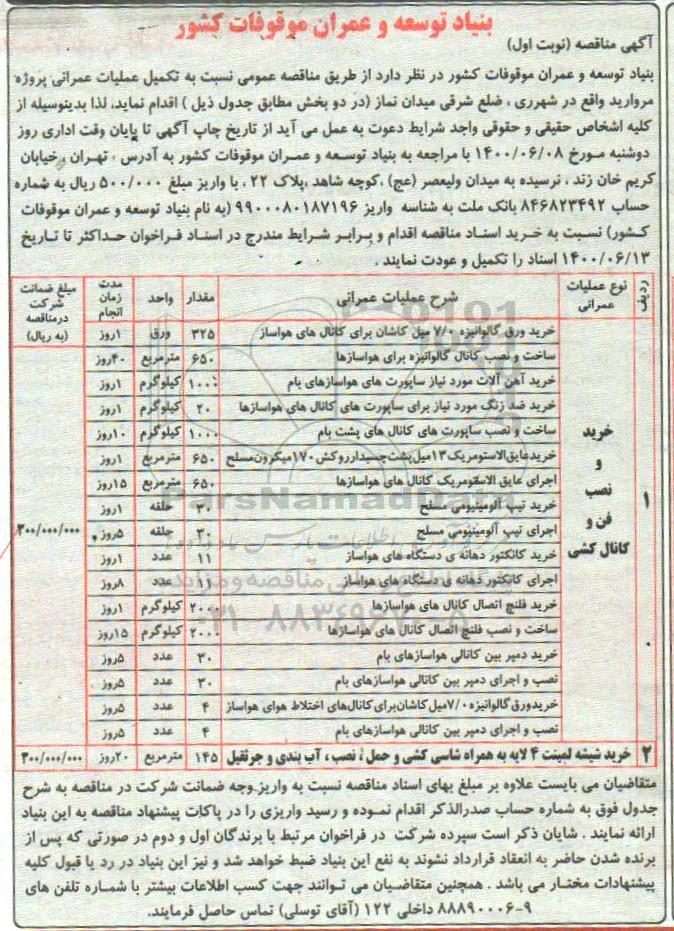 بنیاد توسعه و عمران موقوفات کشور
آگهی مناقصه (نوبت اول)
بنیاد توسعه و عمران موقوفات کشور در نظر دارد از طریق مناقصه عمومی نسبت به تکمیل عملیات عمرانی پروژه
مروارید واقع در شهرری ، ضلع شرقی میدان نماز (در دو بخش مطابق جدول ذیل ) اقدام نماید، لذا بدینوسیله از
کلیه اشخاص حقیقی و حقوقی واجد شرایط دعوت به عمل می آید از تاریخ چاپ آگهی تا پایان وقت اداری روز
دوشنبه مورخ ۱۴۰۰/۰۶/۰۸ با مراجعه به بنیاد توسعه و عمران موقوفات کشور به آدرس ، تهران ، خیابان
کریم خان زند ، نرسیده به میدان ولیعصر (عج) ،کوچه شاهد ،پلاک ۲۲ ، با واریز مبلغ ۵۰۰/۰۰۰ ریال به شماره
حساب ۸۴۶۸۲۳۴۹۲ بانک ملت به شناسه واریز ۹۹۰۰۰۸۰۱۸۷۱۹۶ (به نام بنیاد توسعه و عمران موقوفات
کشور) نسبت به خرید اسناد مناقصه اقدام و برابر شرایط مندرج در اسناد فراخوان حداکثر تا تاریخ
۱۴۰۰/۰۶/۱۳ اسناد را تکمیل و عودت نمایند .
ردیف نوع عملیات عمرانی شرح عملیات عمرانی مقدار واحد مدت زمان انجام مبلغ ضمانت شرکت درمناقصه (به ریال)
۱ خرید و نصب فن و کانال کشی ۳۰۰/۰۰۰/۰۰۰
خرید ورق گالوانیزه ۷/۰ میل کاشان برای کانال های هواساز ۳۲۵ ورق ۱روز
ساخت و نصب کانال گالوانیزه برای هواسازها ۶۵۰ مترمربع ۴۰روز
خرید آهن آلات مورد نیاز ساپورت های هواسازهای بام ۱۰۰۰ کیلوگرم ۱روز
خرید ضد زنگ مورد نیاز برای ساپورت های کانال های هواسازها ۲۰ کیلوگرم ۱روز
ساخت و نصب ساپورت های کانال های پشت بام ۱۰۰۰ کیلوگرم ۱۰روز
خریدعایق الاستومریک ۱۳میل پشت چسبدارروکش ۱۷۰میکرون مسلح ۶۵۰ مترمربع ۱روز
اجرای عایق الاستومریک کانال های هواسازها ۶۵۰ مترمربع ۱۵روز
خرید تیپ آلومینیومی مسلح ۳۰ حلقه ۱روز
اجرای تیپ آلومینیومی مسلح ۳۰ حلقه ۵روز
خرید کانکتور دهانه ی دستگاه های هواساز ۱۱ عدد ۱روز
اجرای کانکتور دهانه ی دستگاه های هواساز ۱۱ عدد ۸روز
خرید فلنچ اتصال کانال های هواسازها ۲۰۰۰ کیلوگرم ۱روز
ساخت و نصب فلنچ اتصال کانال های هواسازها ۲۰۰۰ کیلوگرم ۱۵روز
خرید دمپر بین کانالی هواسازهای بام ۳۰ عدد ۵روز
نصب و اجرای دمپر بین کانالی هواسازهای بام ۳۰ عدد ۵روز
خریدورق گالوانیزه ۷/۰میل کاشان برای کانال‌های اختلاط هوای هواساز ۴ عدد ۵روز
نصب و اجرای دمپر بین کانالی هواسازهای بام ۴ عدد ۵روز
۲ خرید شیشه لمینت ۴ لایه به همراه شاسی کشی و حمل ، نصب ، آب بندی و جرثقیل ۱۴۵ مترمربع ۲۰روز ۳۰۰/۰۰۰/۰۰۰
متقاضیان می بایست علاوه بر مبلغ بهای اسناد مناقصه نسبت به واریز وجه ضمانت شرکت در مناقصه به شرح
جدول فوق به شماره حساب صدرالذکر اقدام نموده و رسید واریزی را در پاکات پیشنهاد مناقصه به این بنیاد
ارائه نمایند . شایان ذکر است سپرده شرکت در فراخوان مرتبط با برندگان اول و دوم در صورتی که پس از
برنده شدن حاضر به انعقاد قرارداد نشوند به نفع این بنیاد ضبط خواهد شد و نیز این بنیاد در رد یا قبول کلیه
پیشنهادات مختار می باشد . همچنین متقاضیان می توانند جهت کسب اطلاعات بیشتر با شماره تلفن های
۹-۸۸۸۹۰۰۰۶ داخلی ۱۲۲ (آقای توسلی) تماس حاصل فرمایند.
ParsNamadData
۰۲۱-۸۸۳۴۹۶۷۰-۵